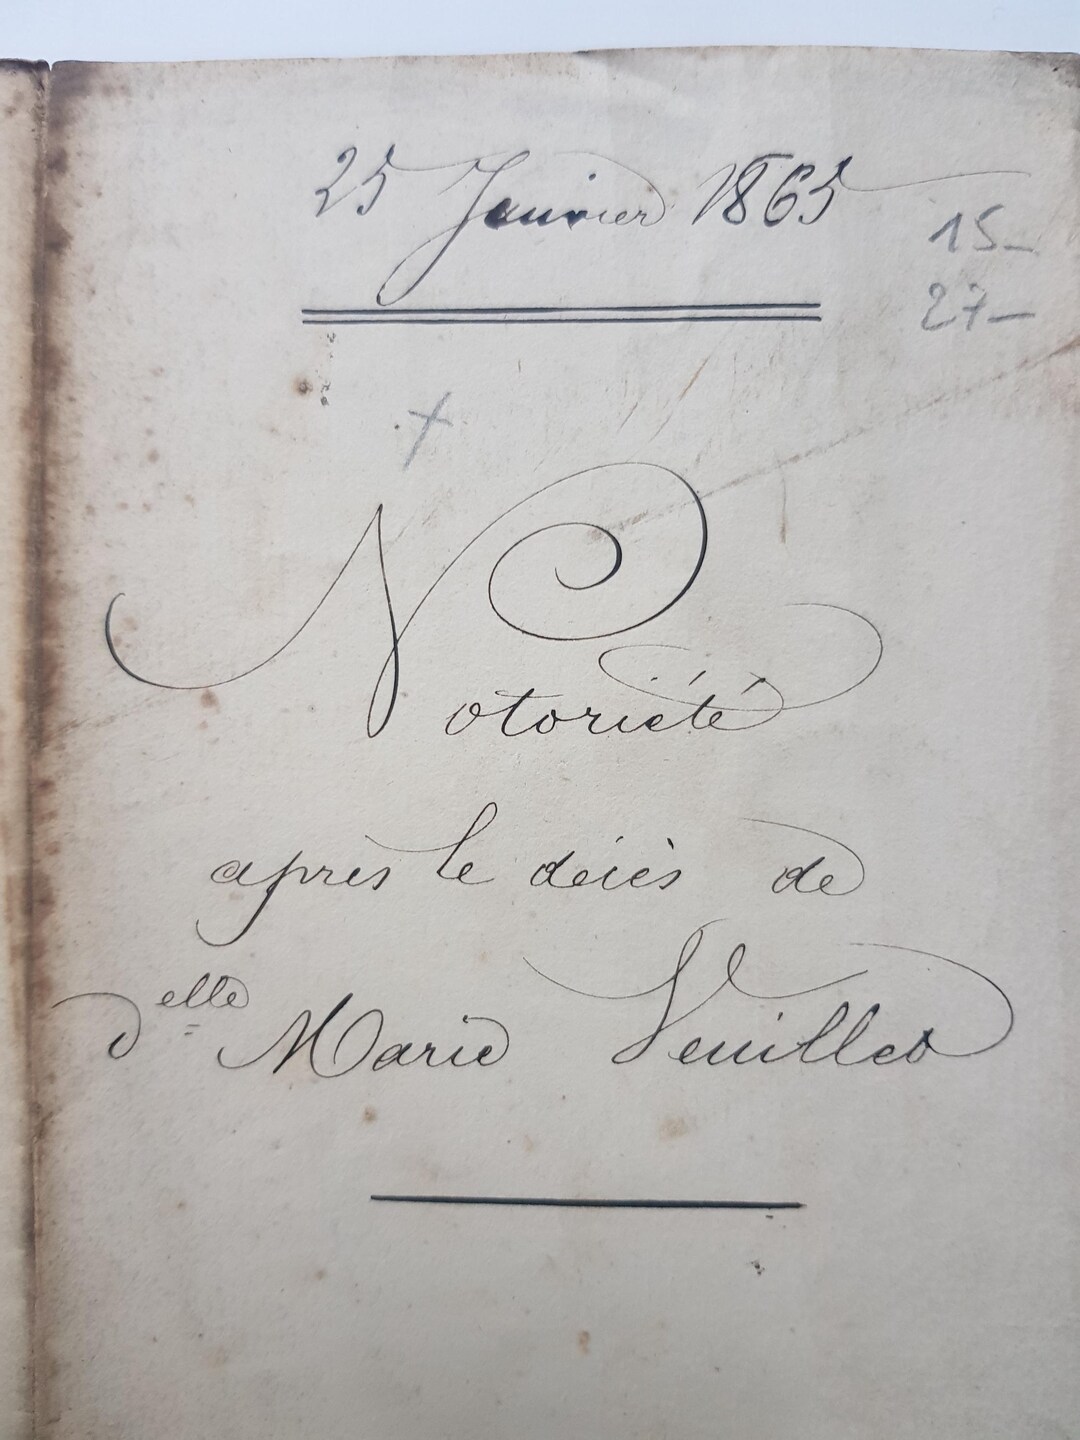 25 Janvier 1865
15-
27-
+
Notoriété
après le décès de
d^elle Marie Veuillet